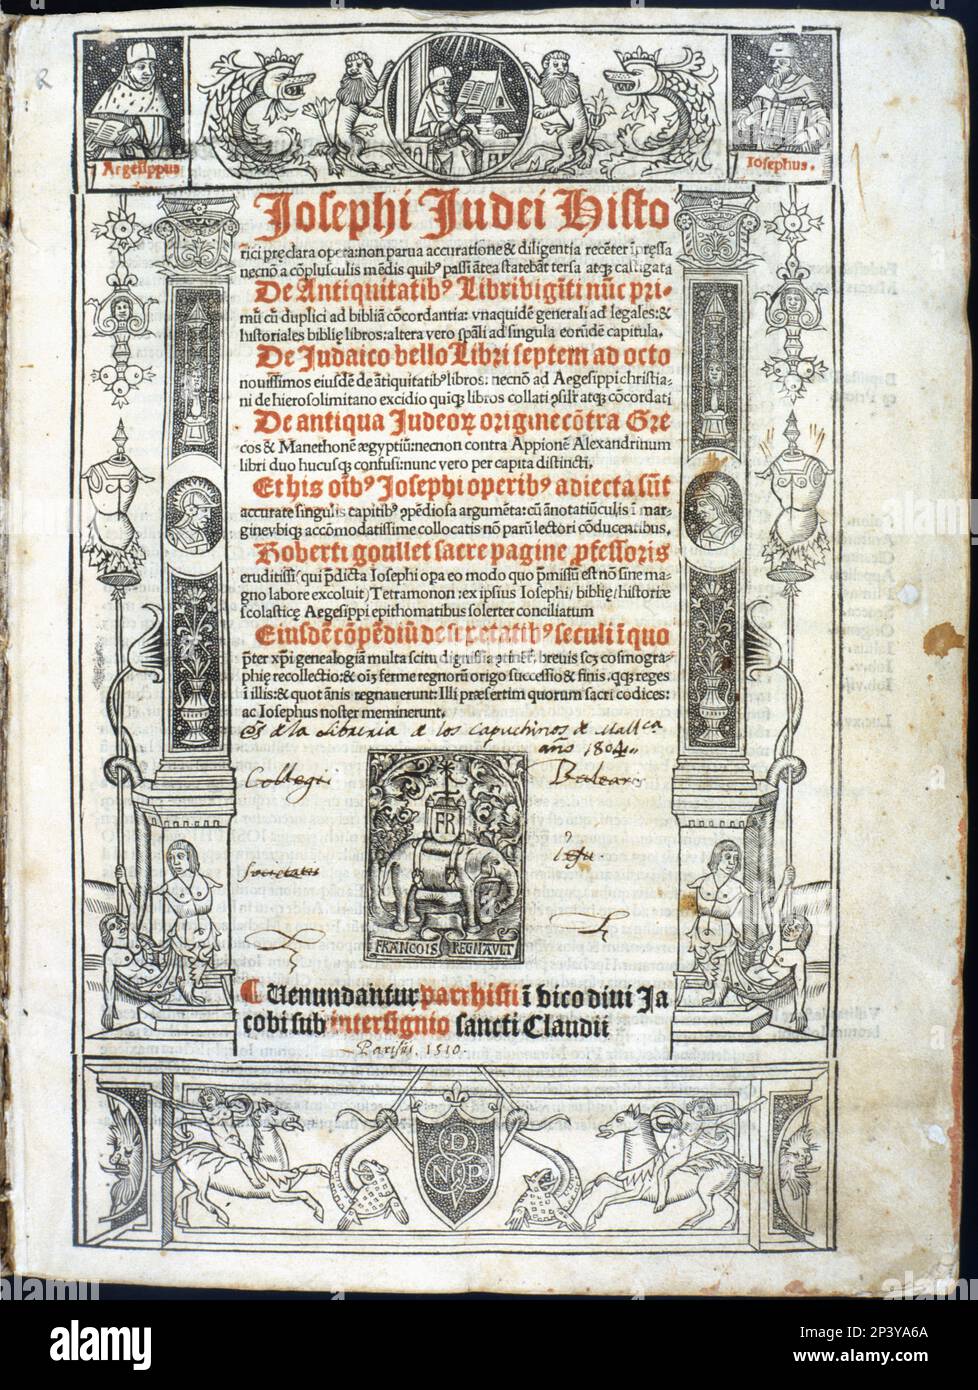 Aegesippus
Iosephus.
Iosephi Iudei Histo
rici pręclara opera: non parua accuratione & diligentia recẽter ĩpręssa
necnõ a cõplusculis mẽdis quibꝰ passi ãtea statebãt tersa atqꝫ castigata
De Antiquitatibꝰ Libri biginti nũc pri-
mũ cũ duplici ad bibliã cõcordantia: vnaquidẽ generali ad legales: &
historiales biblię libros: altera vero spãli ad singula eorũdẽ capitula.
De Judaico bello Libri septem ad octo
nouissimos eiusdẽ de ãtiquitatibꝰ libros: necnõ ad Aegesippi christia-
ni de hierosolimitano excidio quiqꝫ libros collati ꝓsilr̃ atqꝫ cõcordati
De antiqua Judeoꝝ origine cõtra Gre
cos & Manethonẽ ægyptiũ: necnon contra Appionẽ Alexandrinum
libri duo hucusqꝫ confusi: nunc vero per capita distincti.
Et his oĩbꝰ Josephi operibꝰ adiecta sũt
accurate singulis capitibꝰ ꝯpẽdiosa argumẽta: cũ ãnotatiũculis ĩ mar-
gine vbiqꝫ accõmodatissime collocatis nõ parũ lectori cõducentibus.
Roberti goullet sacre pagine ꝓfessoris
eruditissi/ qui p̃dicta Iosephi opa eo modo quo p̃missũ est nõ sine ma-
gno labore excoluit/ Tetramonon: ex ipsius Iosephi/ biblię/ historiæ
scolasticę Aegesippi epithomatibus solerter conciliatum
Eiusdẽ cõpẽdiũ de sex etatibꝰ seculi ĩ quo
p̃ter xp̃i genealogiã multa scitu dignissia ꝯtinẽt, breuis scꝫ cosmogra-
phię recollectio: & oĩꝫ ferme regnorũ origo successio & finis. qqꝫ reges
ĩ illis: & quot ãnis regnauerunt: Illi præsertim quorum sacri codices:
ac Iosephus noster meminerunt.
Es de la Libreria de los Capuchinos de Mallca
año 1804
Collegii Balearis
societatis Iesu
FR
FRANCOIS REGNAVLT
Venundantur parrhisii ĩ vico diui Ja
cobi sub intersignio sancti Claudii
Parisiis. 1510.
D
N D
alamy
2P3YA6A